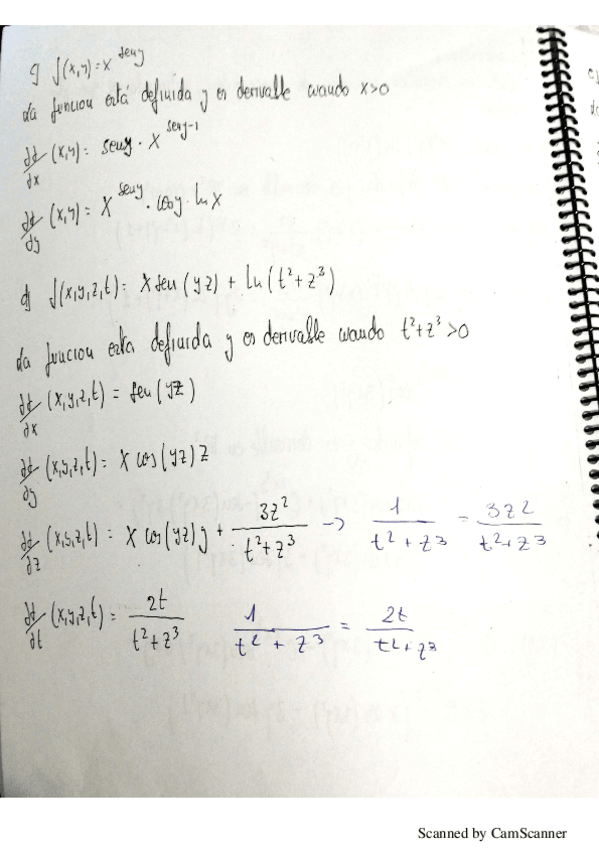 f(x,y)= x^seny
La funcion está definida y es derivable cuando x>0
∂f/∂x (x,y)= seny · x^seny-1
∂f/∂y (x,y)= x^seny · cosy · ln x
d) f(x,y,z,t)= x sen(yz) + ln(t²+z³)
La funcion esta definida y es derivable cuando t²+z³>0
∂f/∂x (x,y,z,t) = sen(yz)
∂f/∂y (x,y,z,t)= x cos(yz)z
∂f/∂z (x,y,z,t) = x cos(yz)y + 3z²/t²+z³ -> 1/t²+z³ = 3z2/t²+z3
∂f/∂t (x,y,z,t)= 2t/t²+z³ 1/t²+z³ = 2t/t²+z³
Scanned by CamScanner